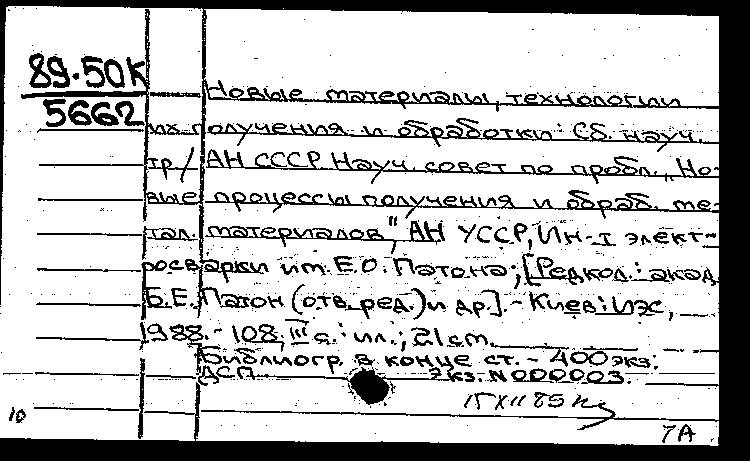 89-50К
5662
Новые материалы, технологии
их получения и обработки: Сб. науч.
тр / АН СССР. Науч. совет по пробл. "Но-
вые процессы получения и обраб. ме-
тал. материалов", АН УССР, Ин-т элект-
росварки им. Е.О. Патона; [Редкол.: акад.
Б.Е. Патон (отв. ред.) и др.]. - Киев: ИЭС,
1988. - 108, III с.: ил.; 21 см.
Библиогр. в конце ст. - 400 экз.
ДСП. Экз. N 000003.
10
7А